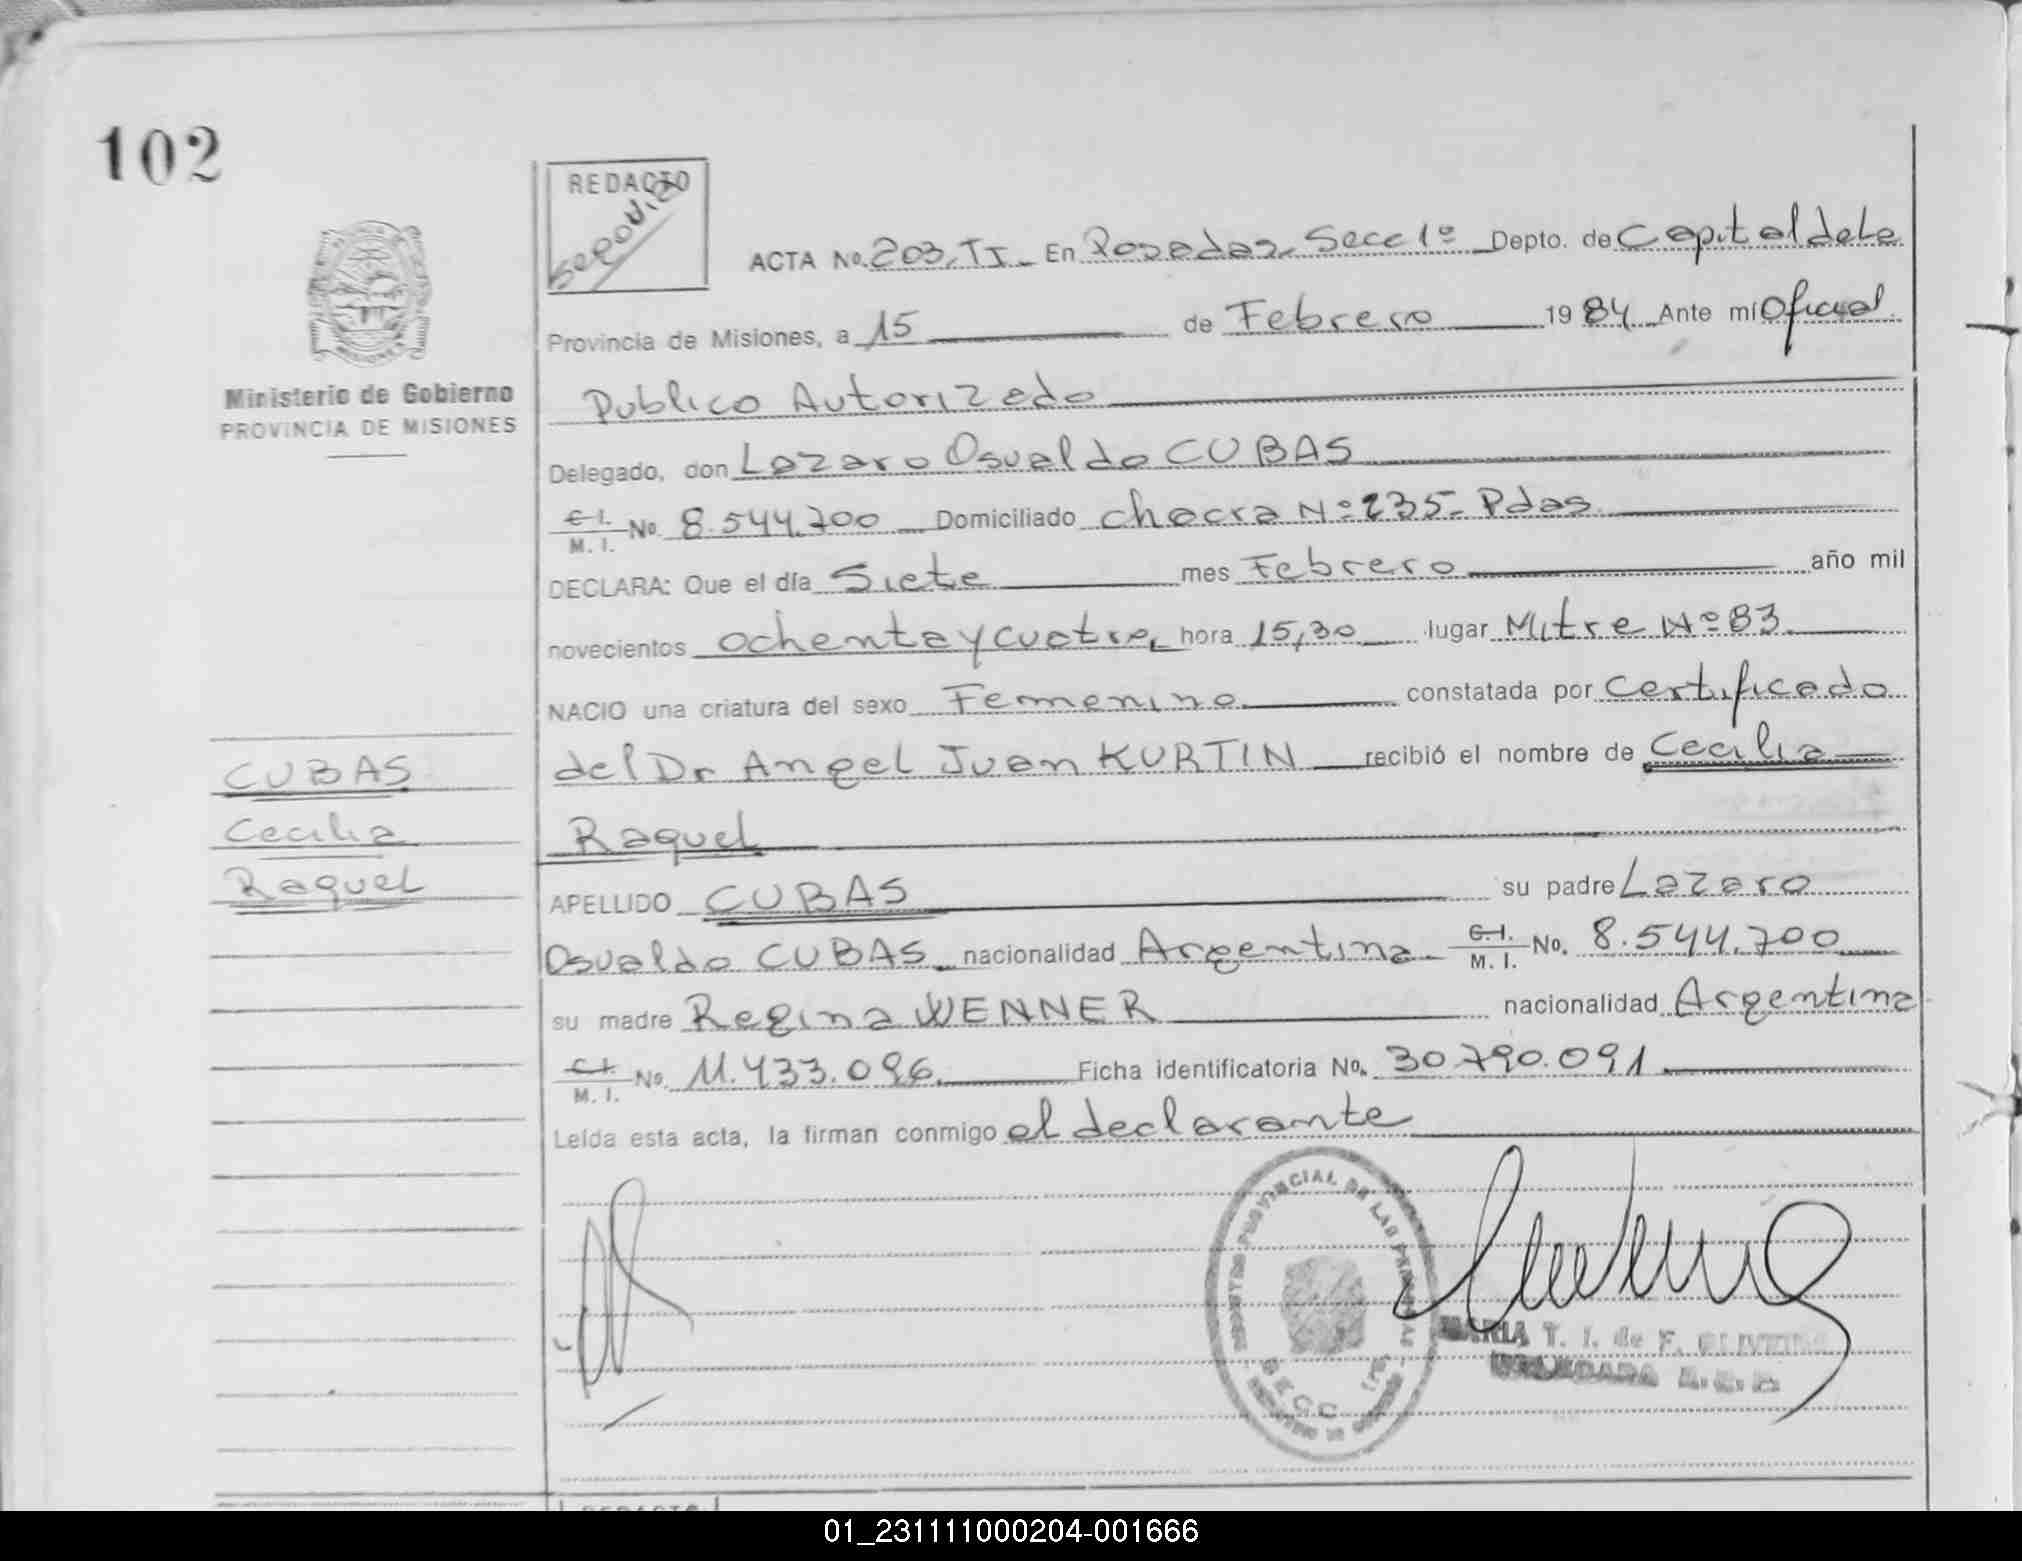 102
REDACTO
ACTA No. 203, TI. En Posadas, Secc 1º Depto. de Capital de la
Provincia de Misiones, a 15 de Febrero 1984 Ante mi Oficial
Ministerio de Gobierno
PROVINCIA DE MISIONES
Publico Autorizado
Delegado, don Lazaro Osvaldo CUBAS
C.I. M. I. No. 8.544.700 Domiciliado chacra Nº 235- Pdas
DECLARA: Que el día Siete mes Febrero año mil
novecientos ochenta y cuatro, hora 15,30 lugar Mitre Nº 83
NACIO una criatura del sexo Femenino constatada por certificado
CUBAS
Cecilia
Raquel
del Dr Angel Juan KURTIN recibió el nombre de Cecilia
Raquel
APELLIDO CUBAS su padre Lazaro
Osvaldo CUBAS nacionalidad Argentina C.I. M. I. No. 8.544.700
su madre Regina WENNER nacionalidad Argentina
C.I. M. I. No. 11.433.096 Ficha identificatoria No. 30.790.091
Leída esta acta, la firman conmigo el declarante
REGISTRO PROVINCIAL DE LAS PERSONAS
MARIA T. I. de F.
01_231111000204-001666